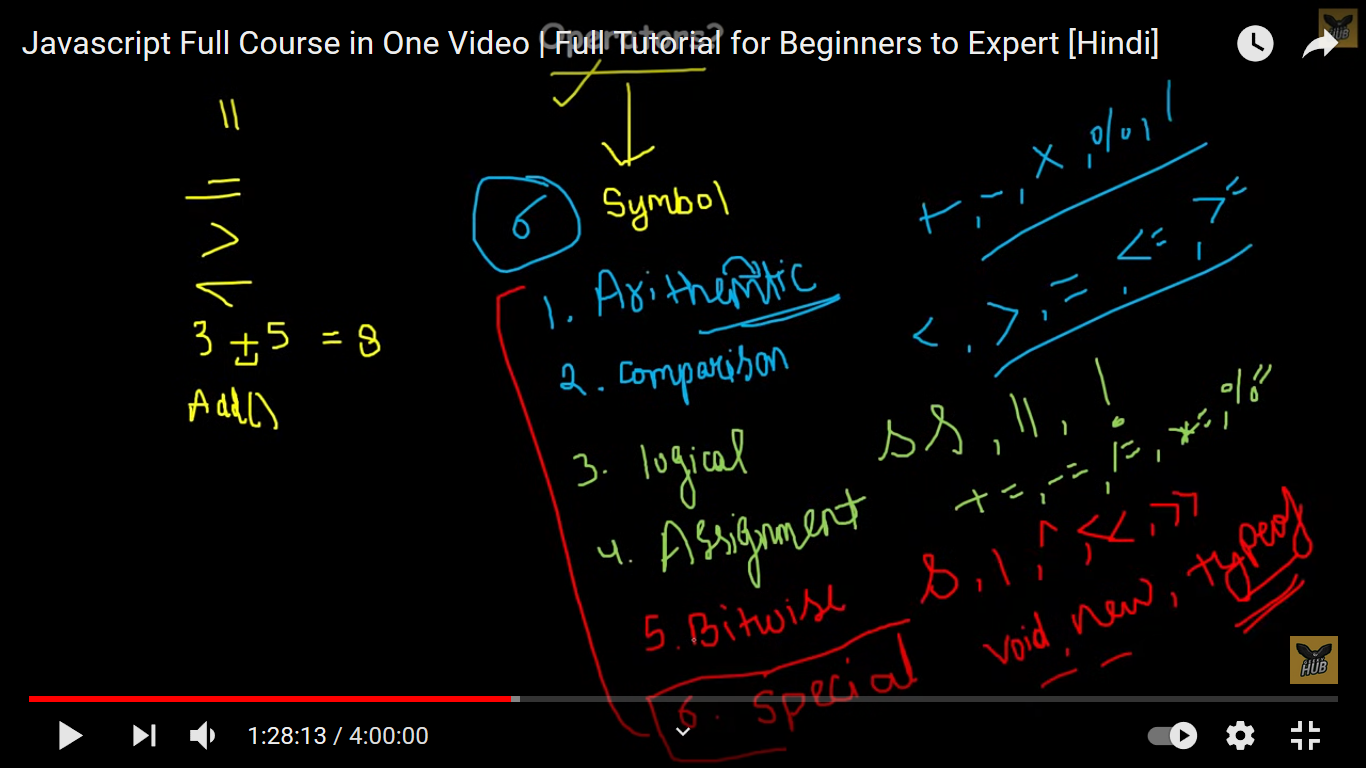 Javascript Full Course in One Video | Full Tutorial for Beginners to Expert [Hindi]
Operators?
||
=
>
<
3 + 5 = 8
Add()
Symbol
6
1. Arithemtic
+, -, ×, %, /
2. Comparison
<, >, =, <=, >=
3. logical
&&, ||, !
4. Assignment
+=, -=, /=, *=, %=
5. Bitwise
&, |, ^, <<, >>
6. Special
void, new, typeof
HUB
1:28:13 / 4:00:00